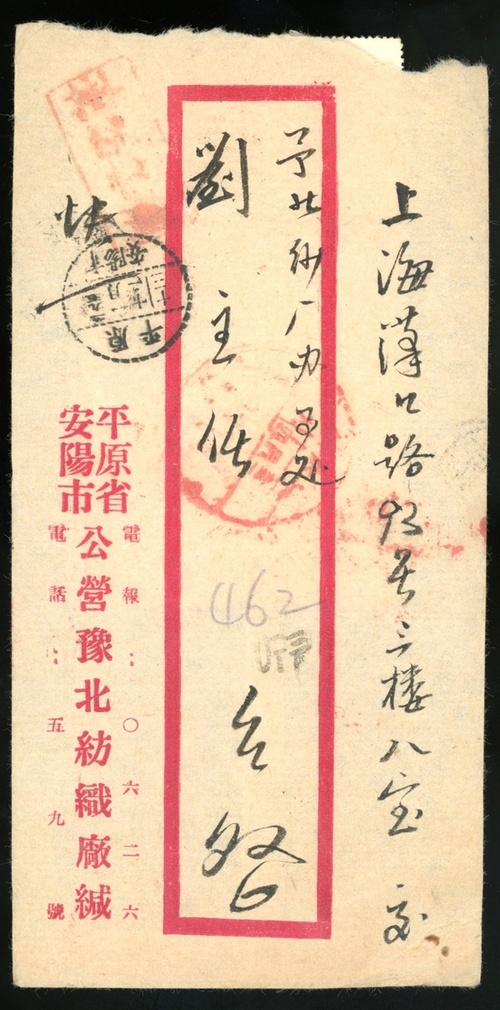 上海漢口路93号三楼八室 交
予北纱厂办事处
劉主任 台啓
462
快
平原
安陽
平原省
安陽市
電報：〇六二六
公營豫北紡織廠緘
電話：五九號